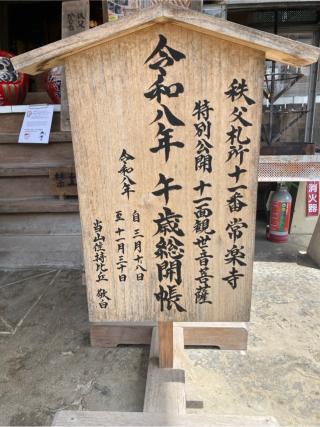 秩父札所十一番 常楽寺
特別公開 十一面観世音菩薩
令和八年 午歳総開帳
令和八年
自 三月十八日
至 十一月三十日
当山住持比丘 敬白
消火器